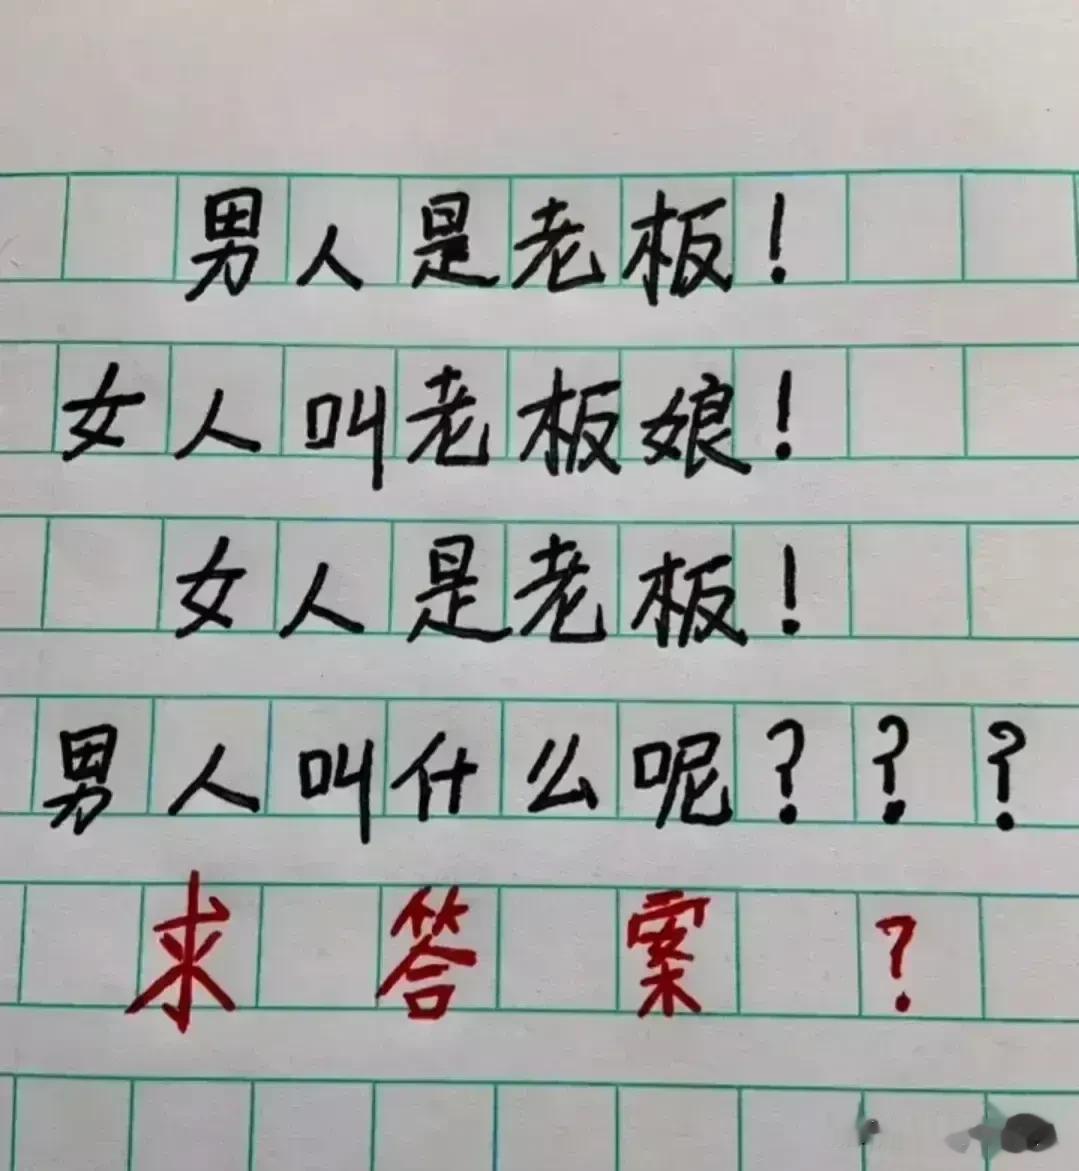 男人是老板!
女人叫老板娘!
女人是老板!
男人叫什么呢???
求答案?